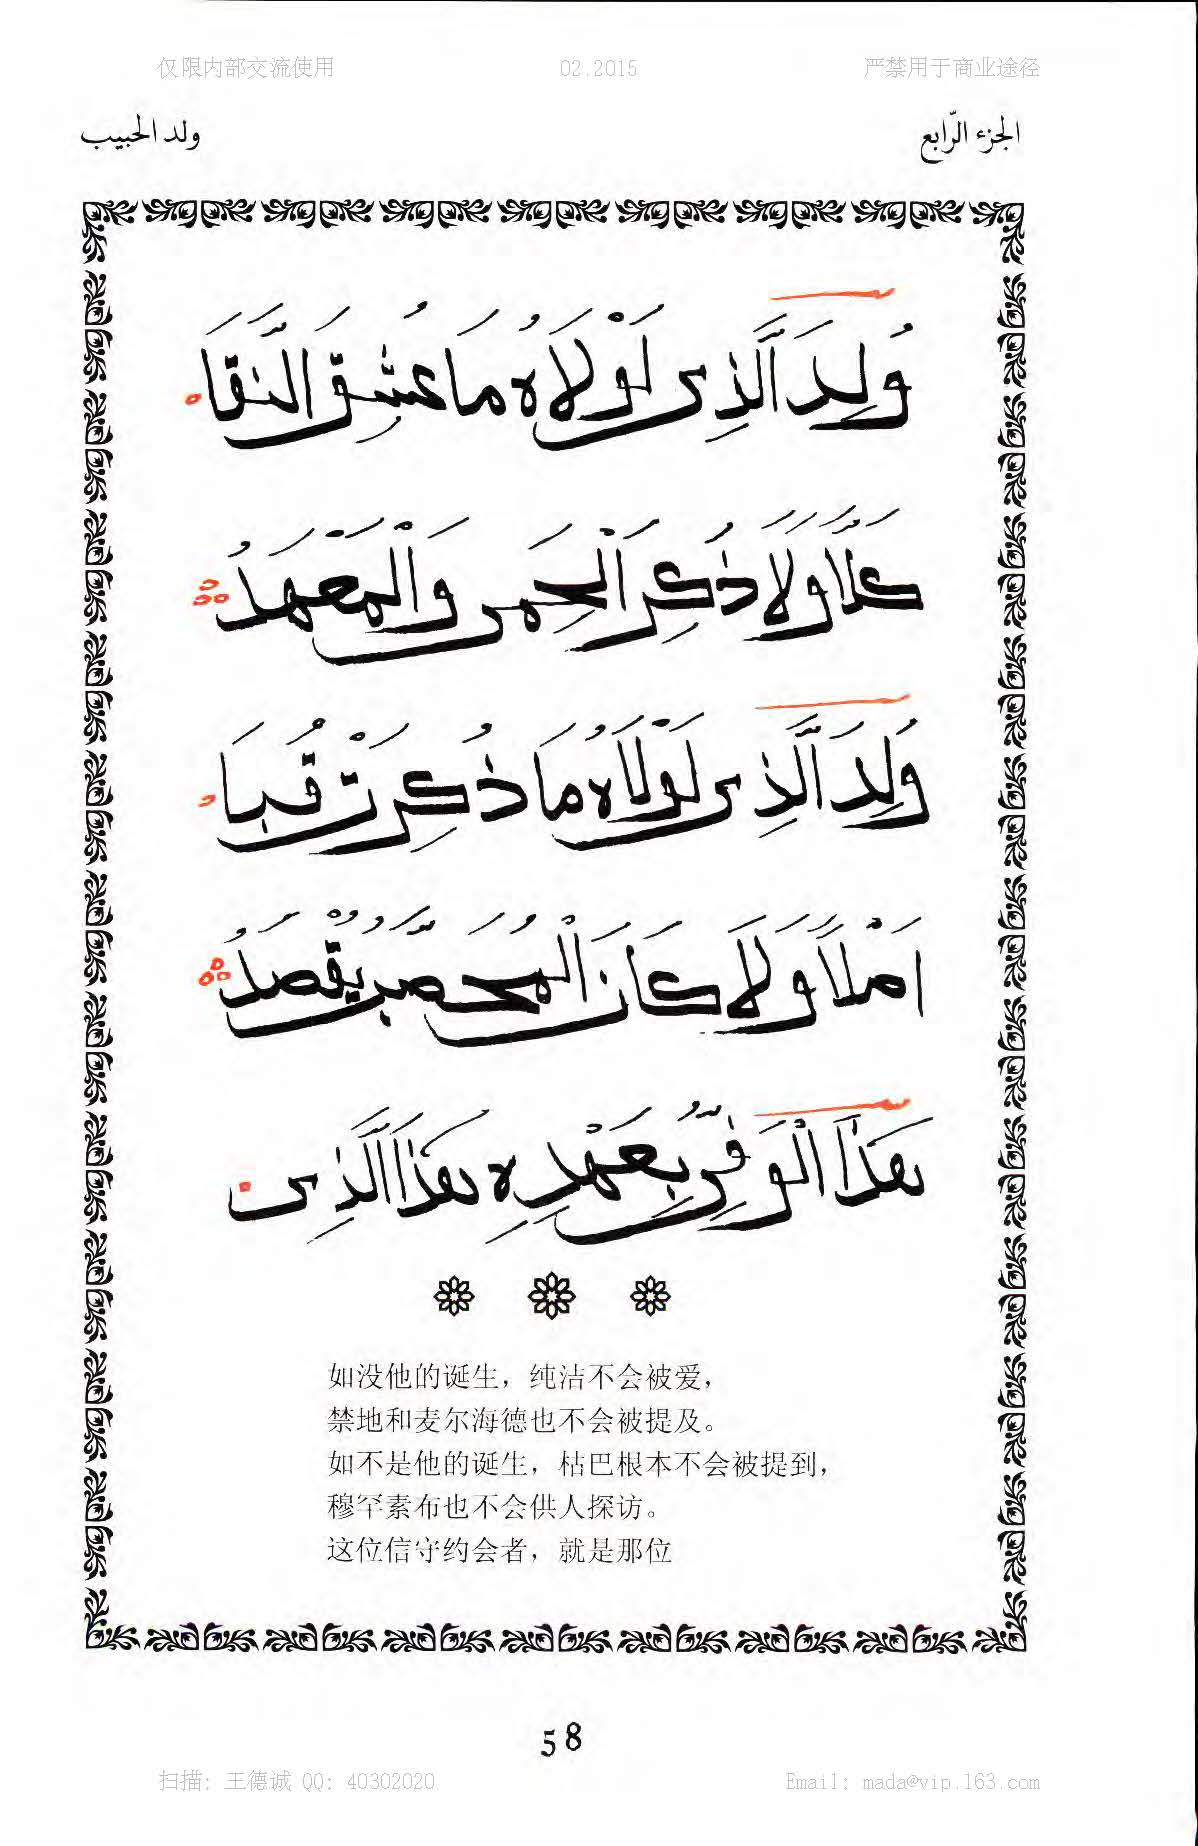 仅限内部交流使用 02.2015 严禁用于商业途径
الجزء الرّابع ولد الحبيب
وُلِدَ الَّذِي لَوْلَاهُ مَا عُشِقَ النَّقَا
كَلَّا وَلَا ذُكِرَ الْحِمَى وَالْمَعْهَدُ
وُلِدَ الَّذِي لَوْلَاهُ مَا ذُكِرَتْ قُبَا
اَصْلًا وَلَا كَانَ الْمُحَصَّبُ يُقْصَدُ
هَذَا الْوَفِيُّ بِعَهْدِهِ هَذَا الَّذِي
如没他的诞生，纯洁不会被爱，
禁地和麦尔海德也不会被提及。
如不是他的诞生，枯巴根本不会被提到，
穆罕素布也不会供人探访。
这位信守约会者，就是那位
58
扫描: 王德诚 QQ: 40302020 Email: mada@vip.163.com